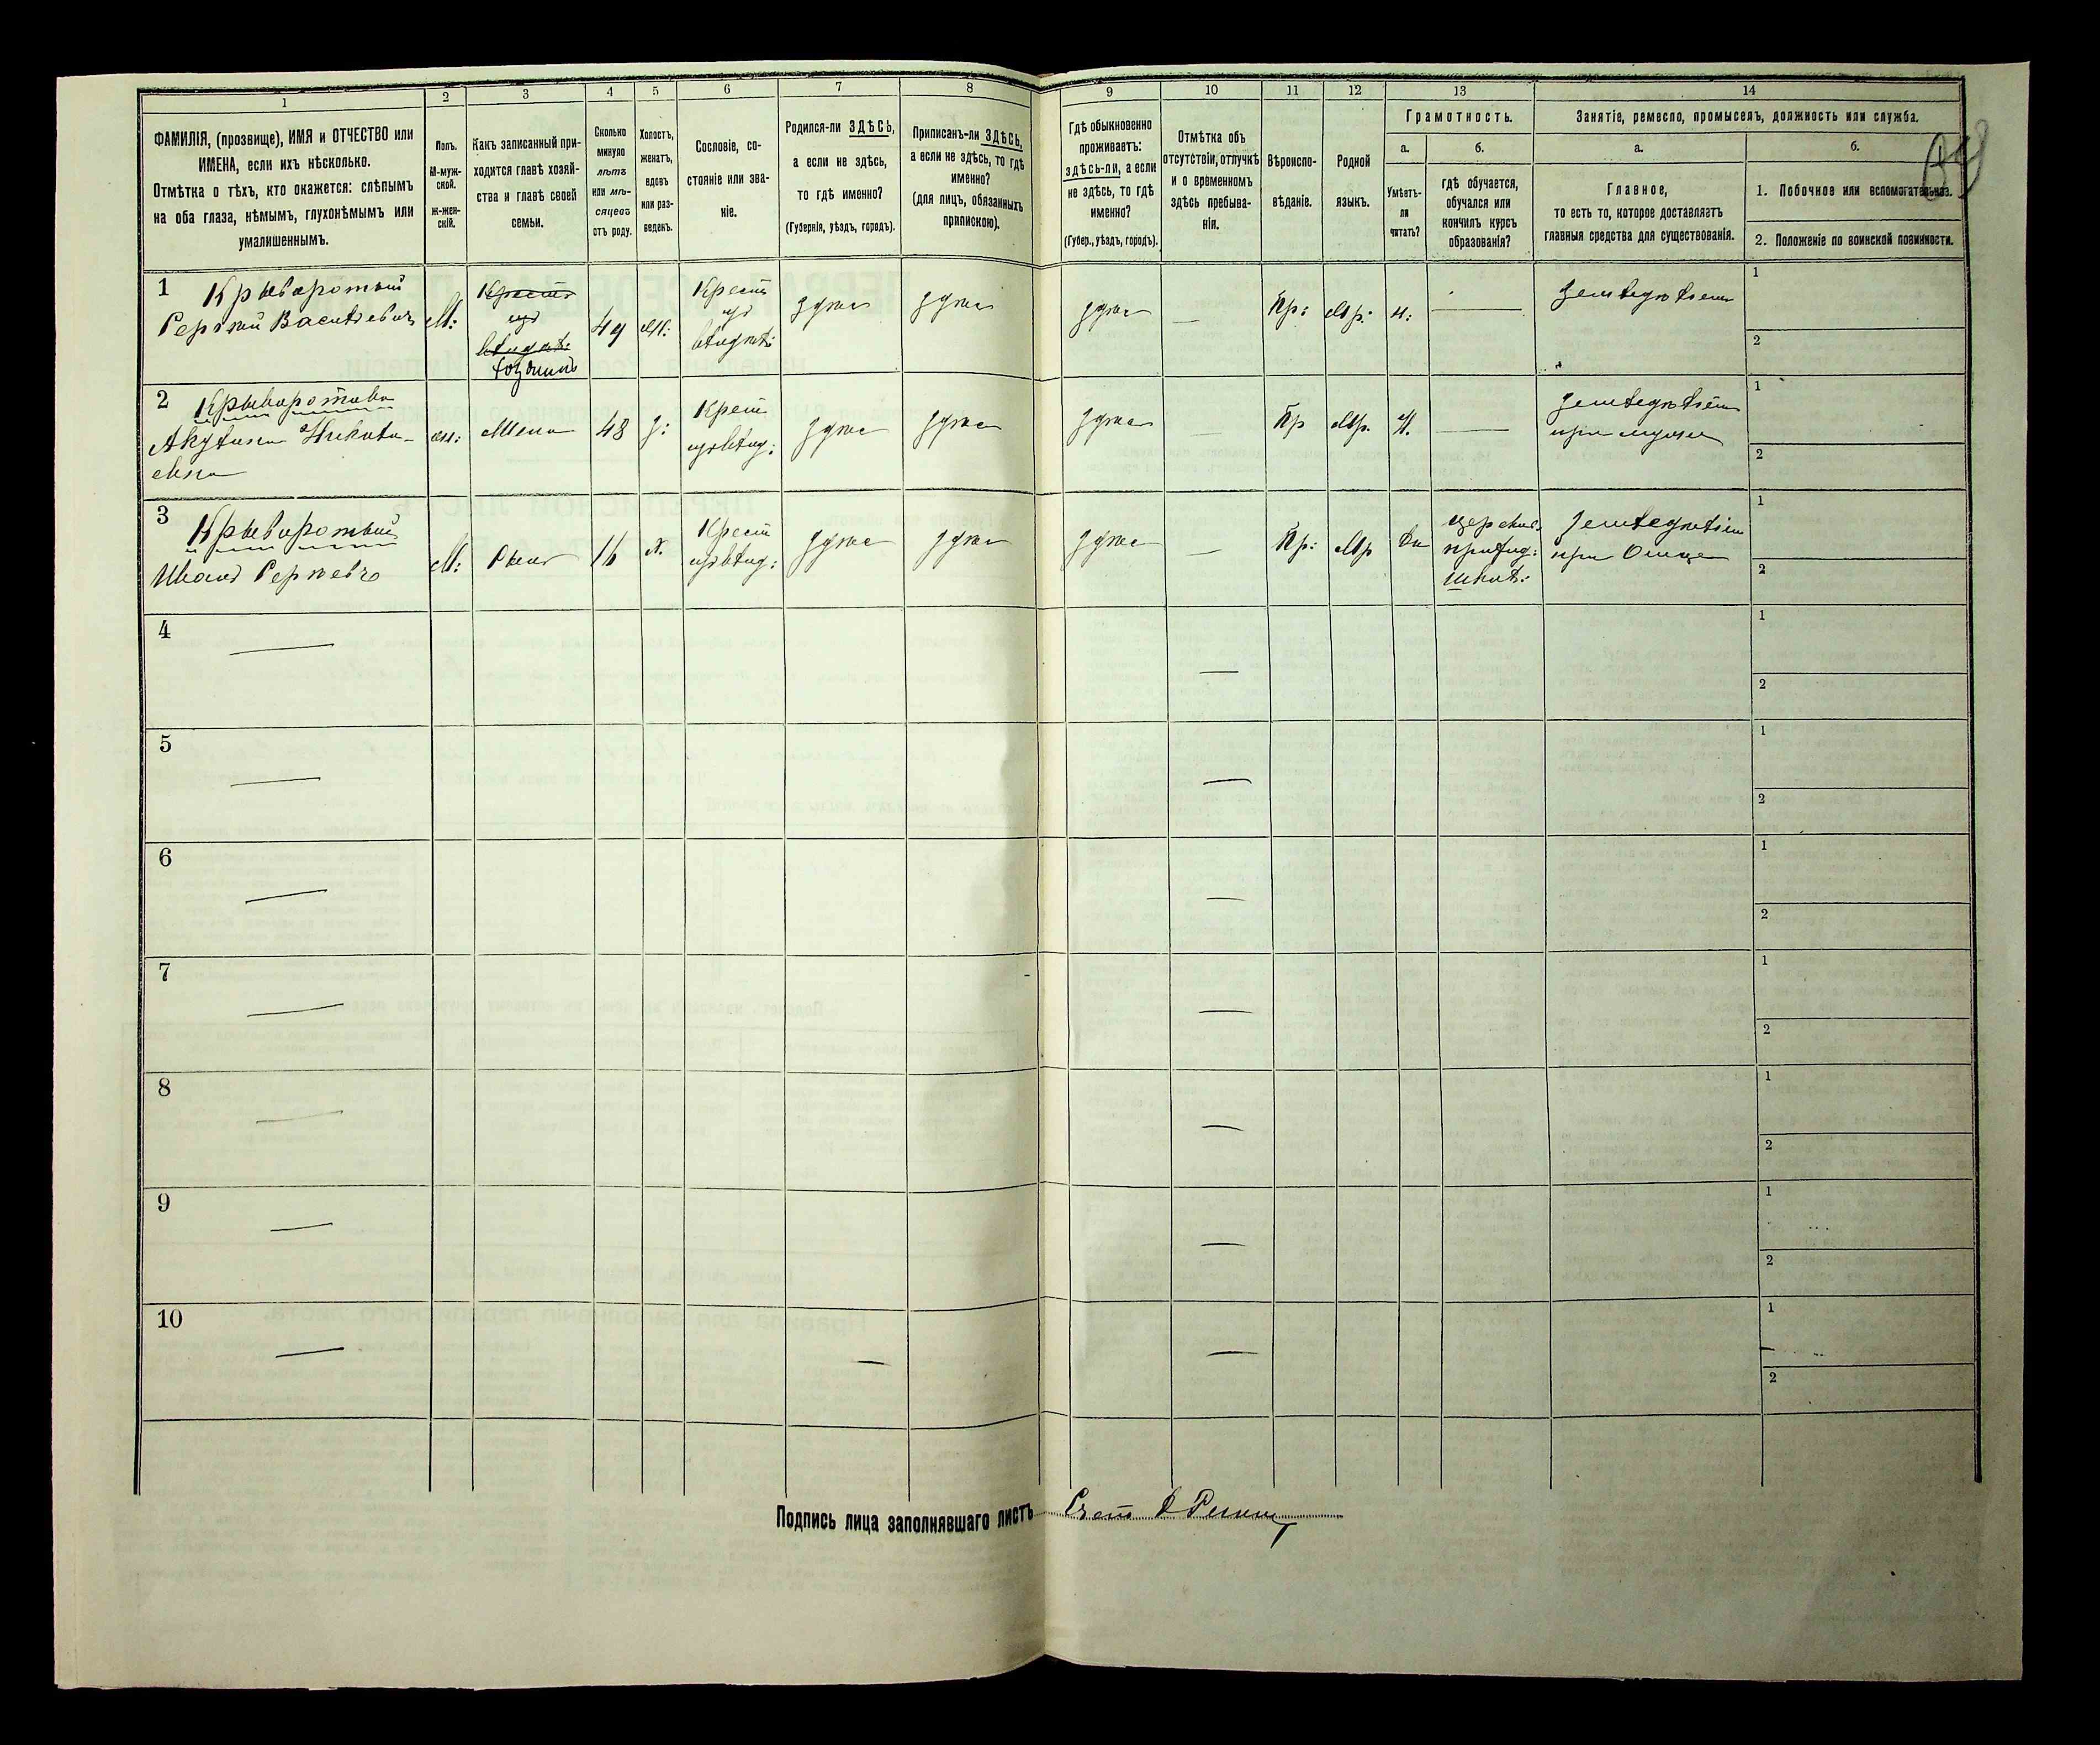 1
2
3
4
5
6
7
8
9
10
11
12
13
14
ФАМИЛІЯ, (прозвище), ИМЯ и ОТЧЕСТВО или
ИМЕНА, если ихъ нѣсколько.
Отмѣтка о тѣхъ, кто окажется: слѣпымъ
на оба глаза, нѣмымъ, глухонѣмымъ или
умалишеннымъ.
Полъ.
М-муж-
ской.
Ж-жен-
скій.
Какъ записанный при-
ходится главѣ хозяй-
ства и главѣ своей
семьи.
Сколько
минуло
лѣтъ
или мѣ-
сяцевъ
отъ роду.
Холостъ,
женатъ,
вдовъ
или раз-
веденъ.
Сословіе, со-
стояніе или зва-
ніе.
Родился-ли ЗДѢСЬ,
а если не здѣсь,
то гдѣ именно?
(Губернія, уѣздъ, городъ).
Приписанъ-ли ЗДѢСЬ,
а если не здѣсь, то гдѣ
именно?
(для лицъ, обязанныхъ
припискою).
Гдѣ обыкновенно
проживаетъ:
здѣсь-ли, а если
не здѣсь, то гдѣ
именно?
(Губер., уѣздъ, городъ).
Отмѣтка объ
отсутствіи, отлучкѣ
и о временномъ
здѣсь пребыва-
ніи.
Вѣроиспо-
вѣданіе.
Родной
языкъ.
Грамотность.
а.
Умѣетъ-
ли
читать?
б.
гдѣ обучается,
обучался или
кончилъ курсъ
образованія?
Занятіе, ремесло, промыселъ, должность или служба.
а.
Главное,
то есть то, которое доставляетъ
главныя средства для существованія.
б.
1. Побочное или вспомогательное.
2. Положеніе по воинской повинности.
1
Крыворотый
Сергѣй Васильевичъ
М:
Хозяинъ
49
Крест
из
владѣл:
здѣсь
здѣсь
здѣсь
—
Пр:
Мр:
н:
—
земледѣліем
1
2
2
Крыворотова
Акулина
ж:
Жена
48
з:
Крест
из влад:
здѣсь
здѣсь
здѣсь
—
Пр
Мр.
Н.
—
земледѣліем
при мужѣ
1
2
3
Крыворотый
Иванъ Сергѣевъ
М:
Сынъ
16
х.
Крест
из влад:
здѣсь
здѣсь
здѣсь
—
Пр:
Мр
Да
церковн.
приход:
школ:
земледѣліем
при Отцѣ
1
2
4
—
—
1
2
5
—
—
1
2
6
—
—
1
2
7
—
—
1
2
8
—
—
1
2
9
—
—
1
2
10
—
—
—
1
2
Подпись лица заполнявшаго листъ